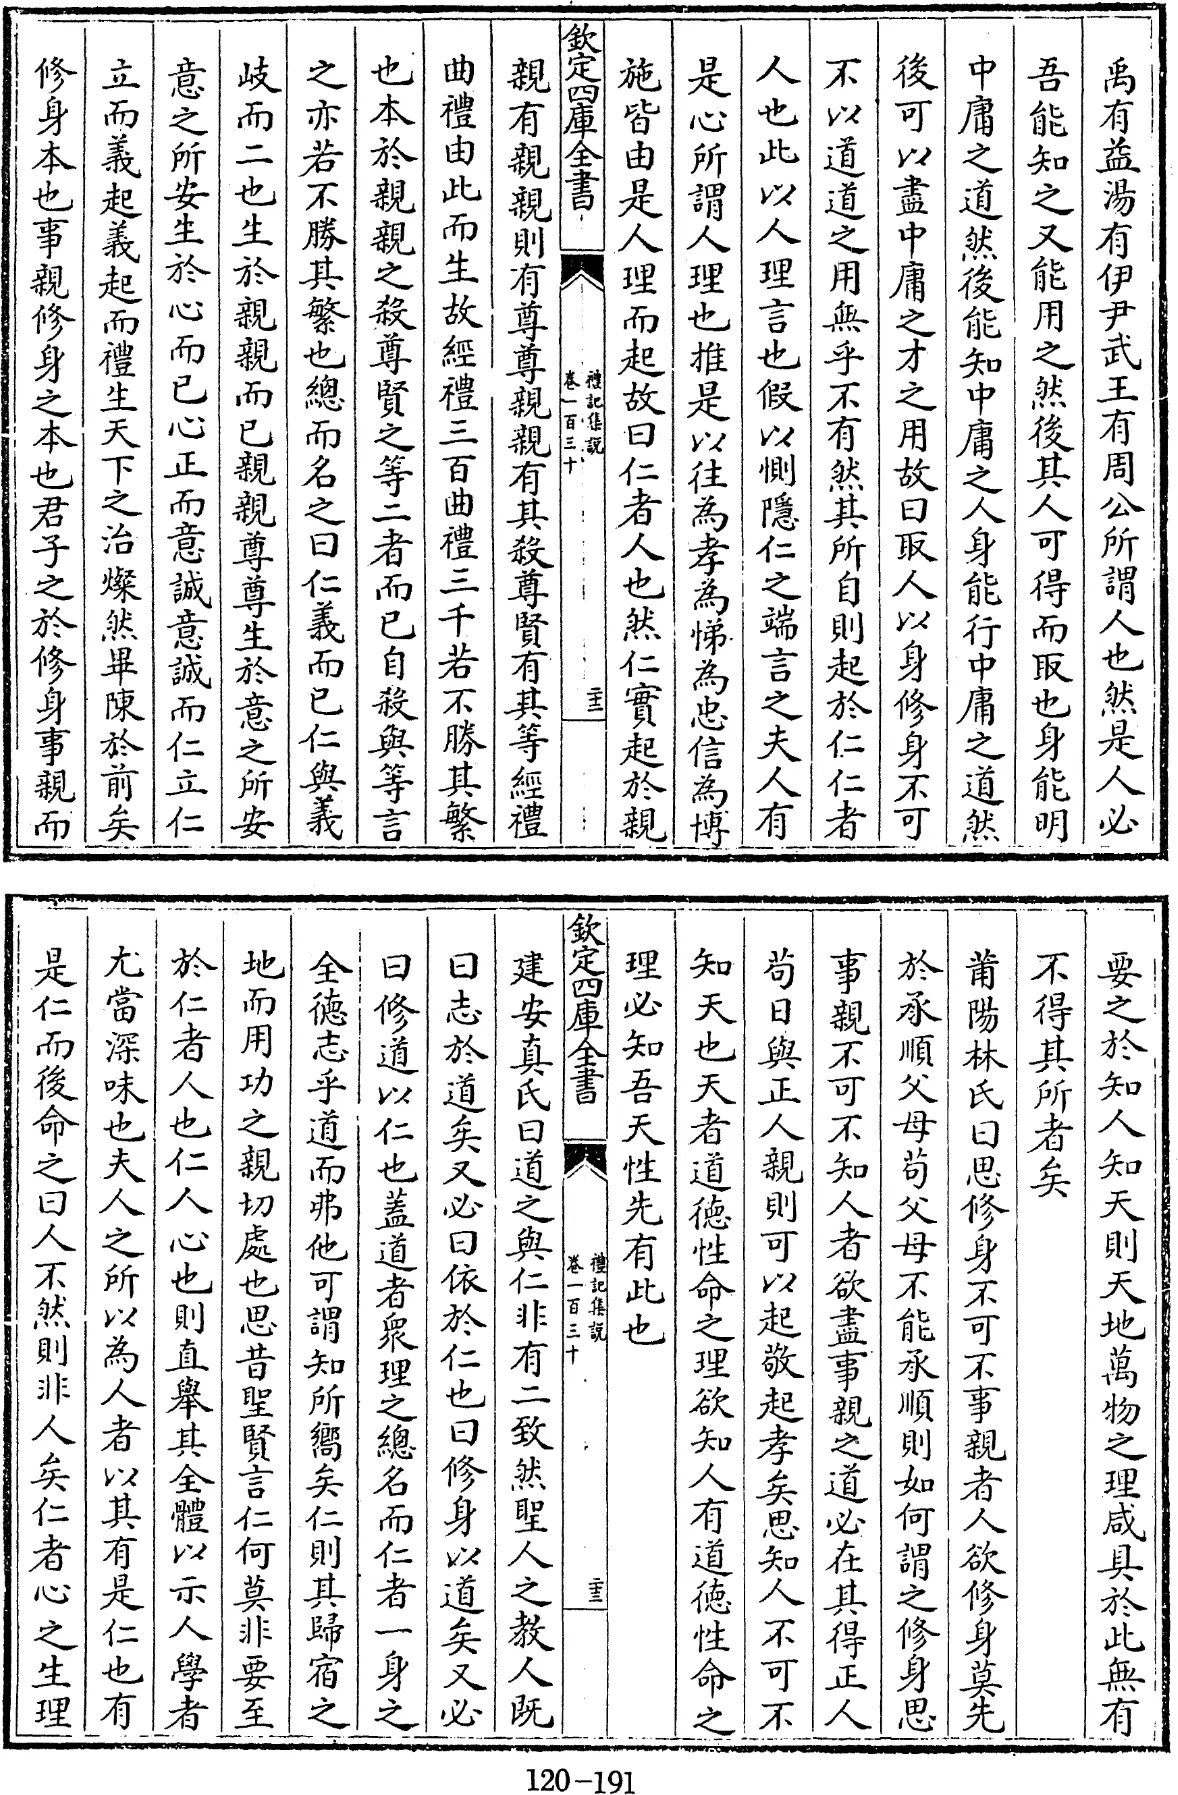 禹有益湯有伊尹武王有周公所謂人也然是人必
吾能知之又能用之然後其人可得而取也身能明
中庸之道然後能知中庸之人身能行中庸之道然
後可以盡中庸之才之用故曰取人以身修身不可
不以道道之用無乎不有然其所自則起於仁仁者
人也此以人理言也假以惻隱仁之端言之夫人有
是心所謂人理也推是以往為孝為悌為忠信為博
施皆由是人理而起故曰仁者人也然仁實起於親
欽定四庫全書
禮記集說
卷一百三十
二十三
親有親親則有尊尊親親有其殺尊賢有其等經禮
曲禮由此而生故經禮三百曲禮三千若不勝其繁
也本於親親之殺尊賢之等二者而已自殺與等言
之亦若不勝其繁也總而名之曰仁義而已仁與義
岐而二也生於親親而已親親尊尊生於意之所安
意之所安生於心而已心正而意誠意誠而仁立仁
立而義起義起而禮生天下之治燦然畢陳於前矣
修身本也事親修身之本也君子之於修身事親而
要之於知人知天則天地萬物之理咸具於此無有
不得其所者矣
莆陽林氏曰思修身不可不事親者人欲修身莫先
於承順父母苟父母不能承順則如何謂之修身思
事親不可不知人者欲盡事親之道必在其得正人
苟日與正人親則可以起敬起孝矣思知人不可不
知天也天者道德性命之理欲知人有道德性命之
理必知吾天性先有此也
欽定四庫全書
禮記集說
卷一百三十
二十三
建安真氏曰道之與仁非有二致然聖人之教人既
曰志於道矣又必曰依於仁也曰修身以道矣又必
曰修道以仁也蓋道者衆理之總名而仁者一身之
全德志乎道而弗他可謂知所嚮矣仁則其歸宿之
地而用功之親切處也思昔聖賢言仁何莫非要至
於仁者人也仁人心也則直舉其全體以示人學者
尤當深味也夫人之所以為人者以其有是仁也有
是仁而後命之曰人不然則非人矣仁者心之生理
120-191